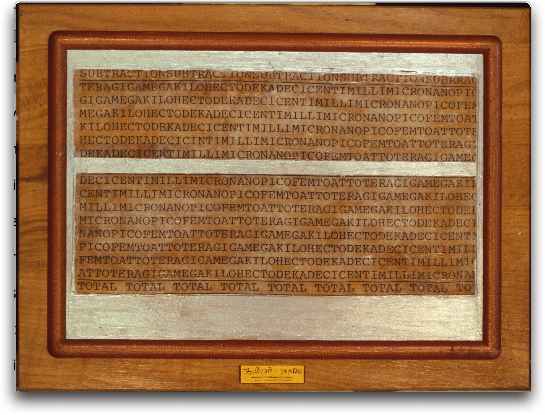 SUBTRACTIONSUBTRACTIONSUBTRACTIONSUBTRACTIONSUBTRA
TERAGIGAMEGAKILOHECTODEKADECICENTIMILLIMICRONANOPI
GIGAMEGAKILOHECTODEKADECICENTIMILLIMICRONANOPICOFE
MEGAKILOHECTODEKADECICENTIMILLIMICRONANOPICOFEMTOA
KILOHECTODEKADECICENTIMILLIMICRONANOPICOFEMTOATTOTE
HECTODEKADECICINTIMILLIMICRONANOPICOFEMTOATTOTERAGI
DEKADECICENTIMILLIMICRONANOPICOFEMTOATTOTERAGIGAMEG
DECICENTIMILLIMICRONANOPICOFEMTOATTOTERAGIGAMEGAKIL
CENTIMILLIMICRONANOPICOFEMTOATTOTERAGIGAMEGAKILOHEC
MILLIMICRONANOPICOFEMTOATTOTERAGIGAMEGAKILOHECTODE
MICRONANOPICOFEMTOATTOTERAGIGAMEGAKILOHECTODEKADECI
NANOPICOFEMTOATTOTERAGIGAMEGAKILOHECTODEKADECICENTI
PICOFEMTOATTOTERAGIGAMEGAKILOHECTODEKADECICENTIMILLI
FEMTOATTOTERAGIGAMEGAKILOHECTODEKADECICENTIMILLIMI
ATTOTERAGIGAMEGAKILOHECTODEKADECICENTIMILLIMICRONA
TOTAL TOTAL TOTAL TOTAL TOTAL TOTAL TOTAL TOTAL TO